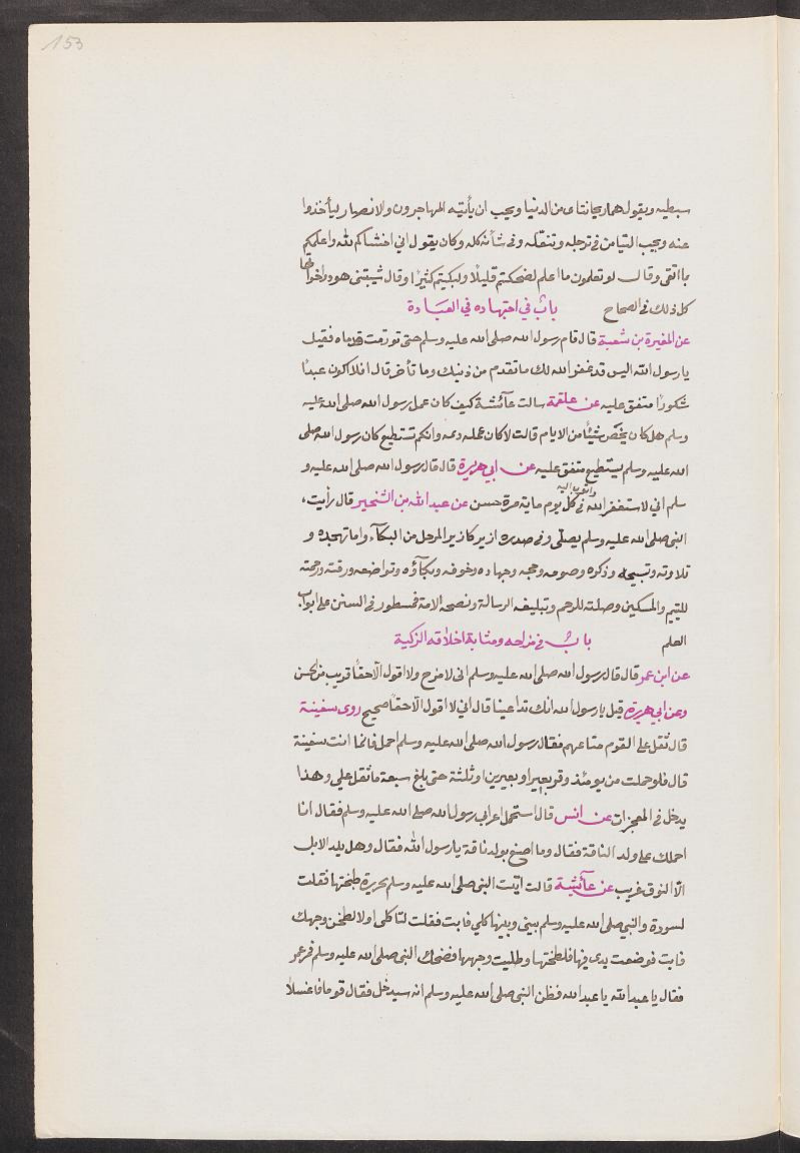 153
سبطيه ويقول هما ريحانتاى من الدنيا ويحب ان يأتيه المهاجرون والانصار ليأخذوا
عنه ويحب التيامن فى ترجله وتنعّله وفى شأنه كله وكان يقول انى اخشاكم لله واعلمكم
بما اتقى وقال لو تعلمون ما اعلم لضحكتم قليلا ولبكيتم كثيرا وقال شيبتنى هود واخواتها
كل ذلك فى الصحاح باب فى اجتهاده فى العبادة
عن المغيرة بن شعبة قال قام رسول الله صلى الله عليه وسلم حتى تورّمت قدماه فقيل
يا رسول الله اليس قد غفر الله لك ما تقدم من ذنبك وما تأخر قال افلا اكون عبدًا
شكورًا متفق عليه عن علقمة سالت عآئشة كيف كان عمل رسول الله صلى الله عليه
وسلم هل كان يخصّ شيئًا من الايام قالت لا كان عمله ديمه وايكم تستطيع كان رسول الله صلى
الله عليه وسلم يستطيع متفق عليه عن ابى هريرة قال قال رسول الله صلى الله عليه و
سلم انى لاستغفر الله واتوب اليه فى كل يوم ماية مرة حسن عن عبد الله بن الشخير قال رأيت
النبى صلى الله عليه وسلم يصلّى وفى صدره ازير كازير المرجل من البكآء واما تهجده و
تلاوته وتسبيحه وذكره وصومه وحجه وجهاده وخوفه وبكآؤه وتواضعه ورقته ورحمته
لليتيم والمسكين وصلته للرحم وتبليغه الرسالة ونصحه الامة فمسطور فى السنن على ابواب
العلم باب فى مزاحه ومثابة اخلاقه الزكية
عن ابن عمر قال قال رسول الله صلى الله عليه وسلم انى لامزح ولا اقول الّا حقًا قريب من الحسن
وعن ابى هريرة قيل يا رسول الله انك تداعبنا قال انى لا اقول الّا حقًا صحيح روى سفينة
قال ثقل على القوم متاعهم فقال رسول الله صلى الله عليه وسلم احمل فانما انت سفينة
قال فلو حملت من يومئذ وقر بعير او بعيرين او ثلثة حتى بلغ سبعة ما ثقل على وهذا
يدخل فى المعجزات عن انس قال استحمل اعرابى رسول الله صلى الله عليه وسلم فقال انا
احملك على ولد الناقة فقال وما اصنع بولد ناقة يا رسول الله فقال وهل يلد الابل
الّا النوق غريب عن عآئشة قالت اتيت النبى صلى الله عليه وسلم بحريرة طبختها فقلت
لسودة والنبى صلى الله عليه وسلم بينى وبينها كلى فابت فقلت لتأكلى او لالطخن وجهك
فابت فوضعت يدى فيها فلطختها وطليت وجهها فضحك النبى صلى الله عليه وسلم فمر عمر
فقال يا عبد الله يا عبد الله فظن النبى صلى الله عليه وسلم انه سيدخل فقال قوما فاغسلا